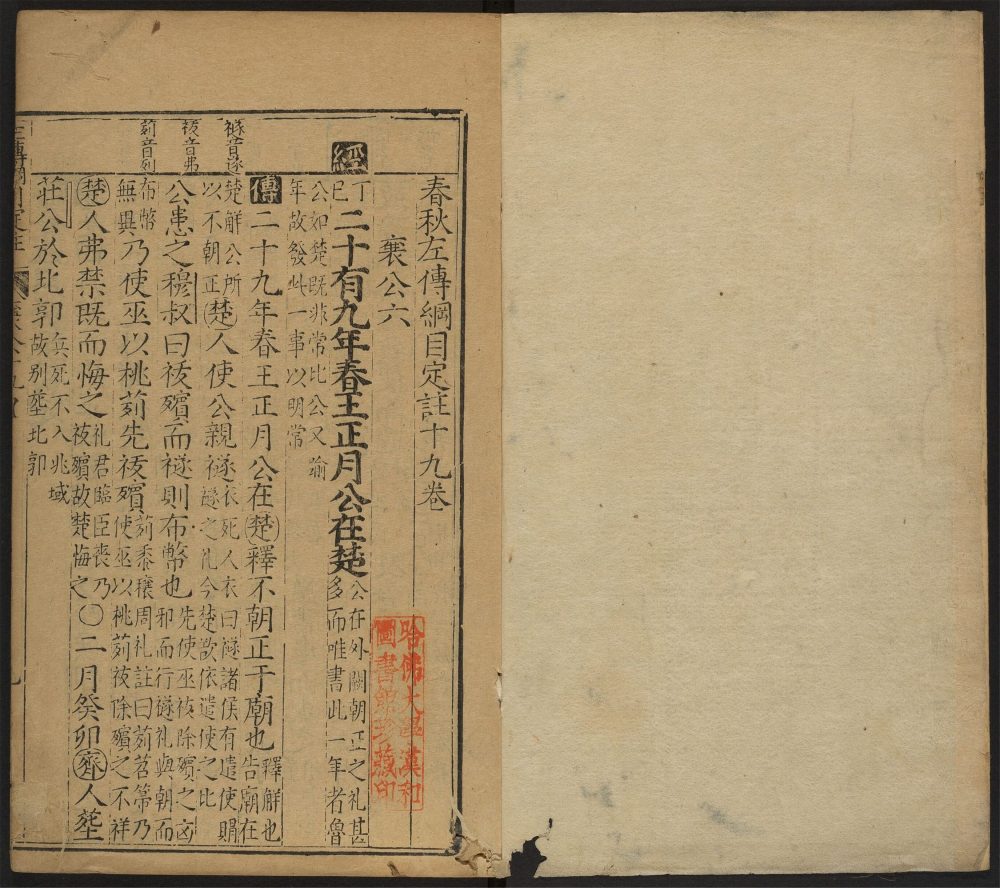 春秋左傳綱目定註十九卷
襄公六
經
丁巳二十有九年春王正月公在楚公在外闕朝正之礼甚多而唯書此一年者魯
公如楚既非常比公又踰年故發此一事以明常
傳二十九年春王正月公在楚釋不朝正于廟也釋解也告廟在
楚解公所以不朝正楚人使公親襚衣死人衣曰襚諸侯有遣使賵襚之礼今楚欲依遣使之比
公患之穆叔曰祓殯而襚則布幣也先使巫祓除殯之凶邪而行襚礼與朝而
布幣無異乃使巫以桃茢先祓殯茢黍穰周礼註曰茢苕箒乃使巫以桃茢祓除殯之不祥
楚人弗禁既而悔之礼君臨臣喪乃祓殯故楚悔之〇二月癸卯齊人塟
莊公於北郭兵死不入兆域故別塟北郭
襚音遂
祓音弗
茢音列
哈佛大學漢和圖書館珍藏印